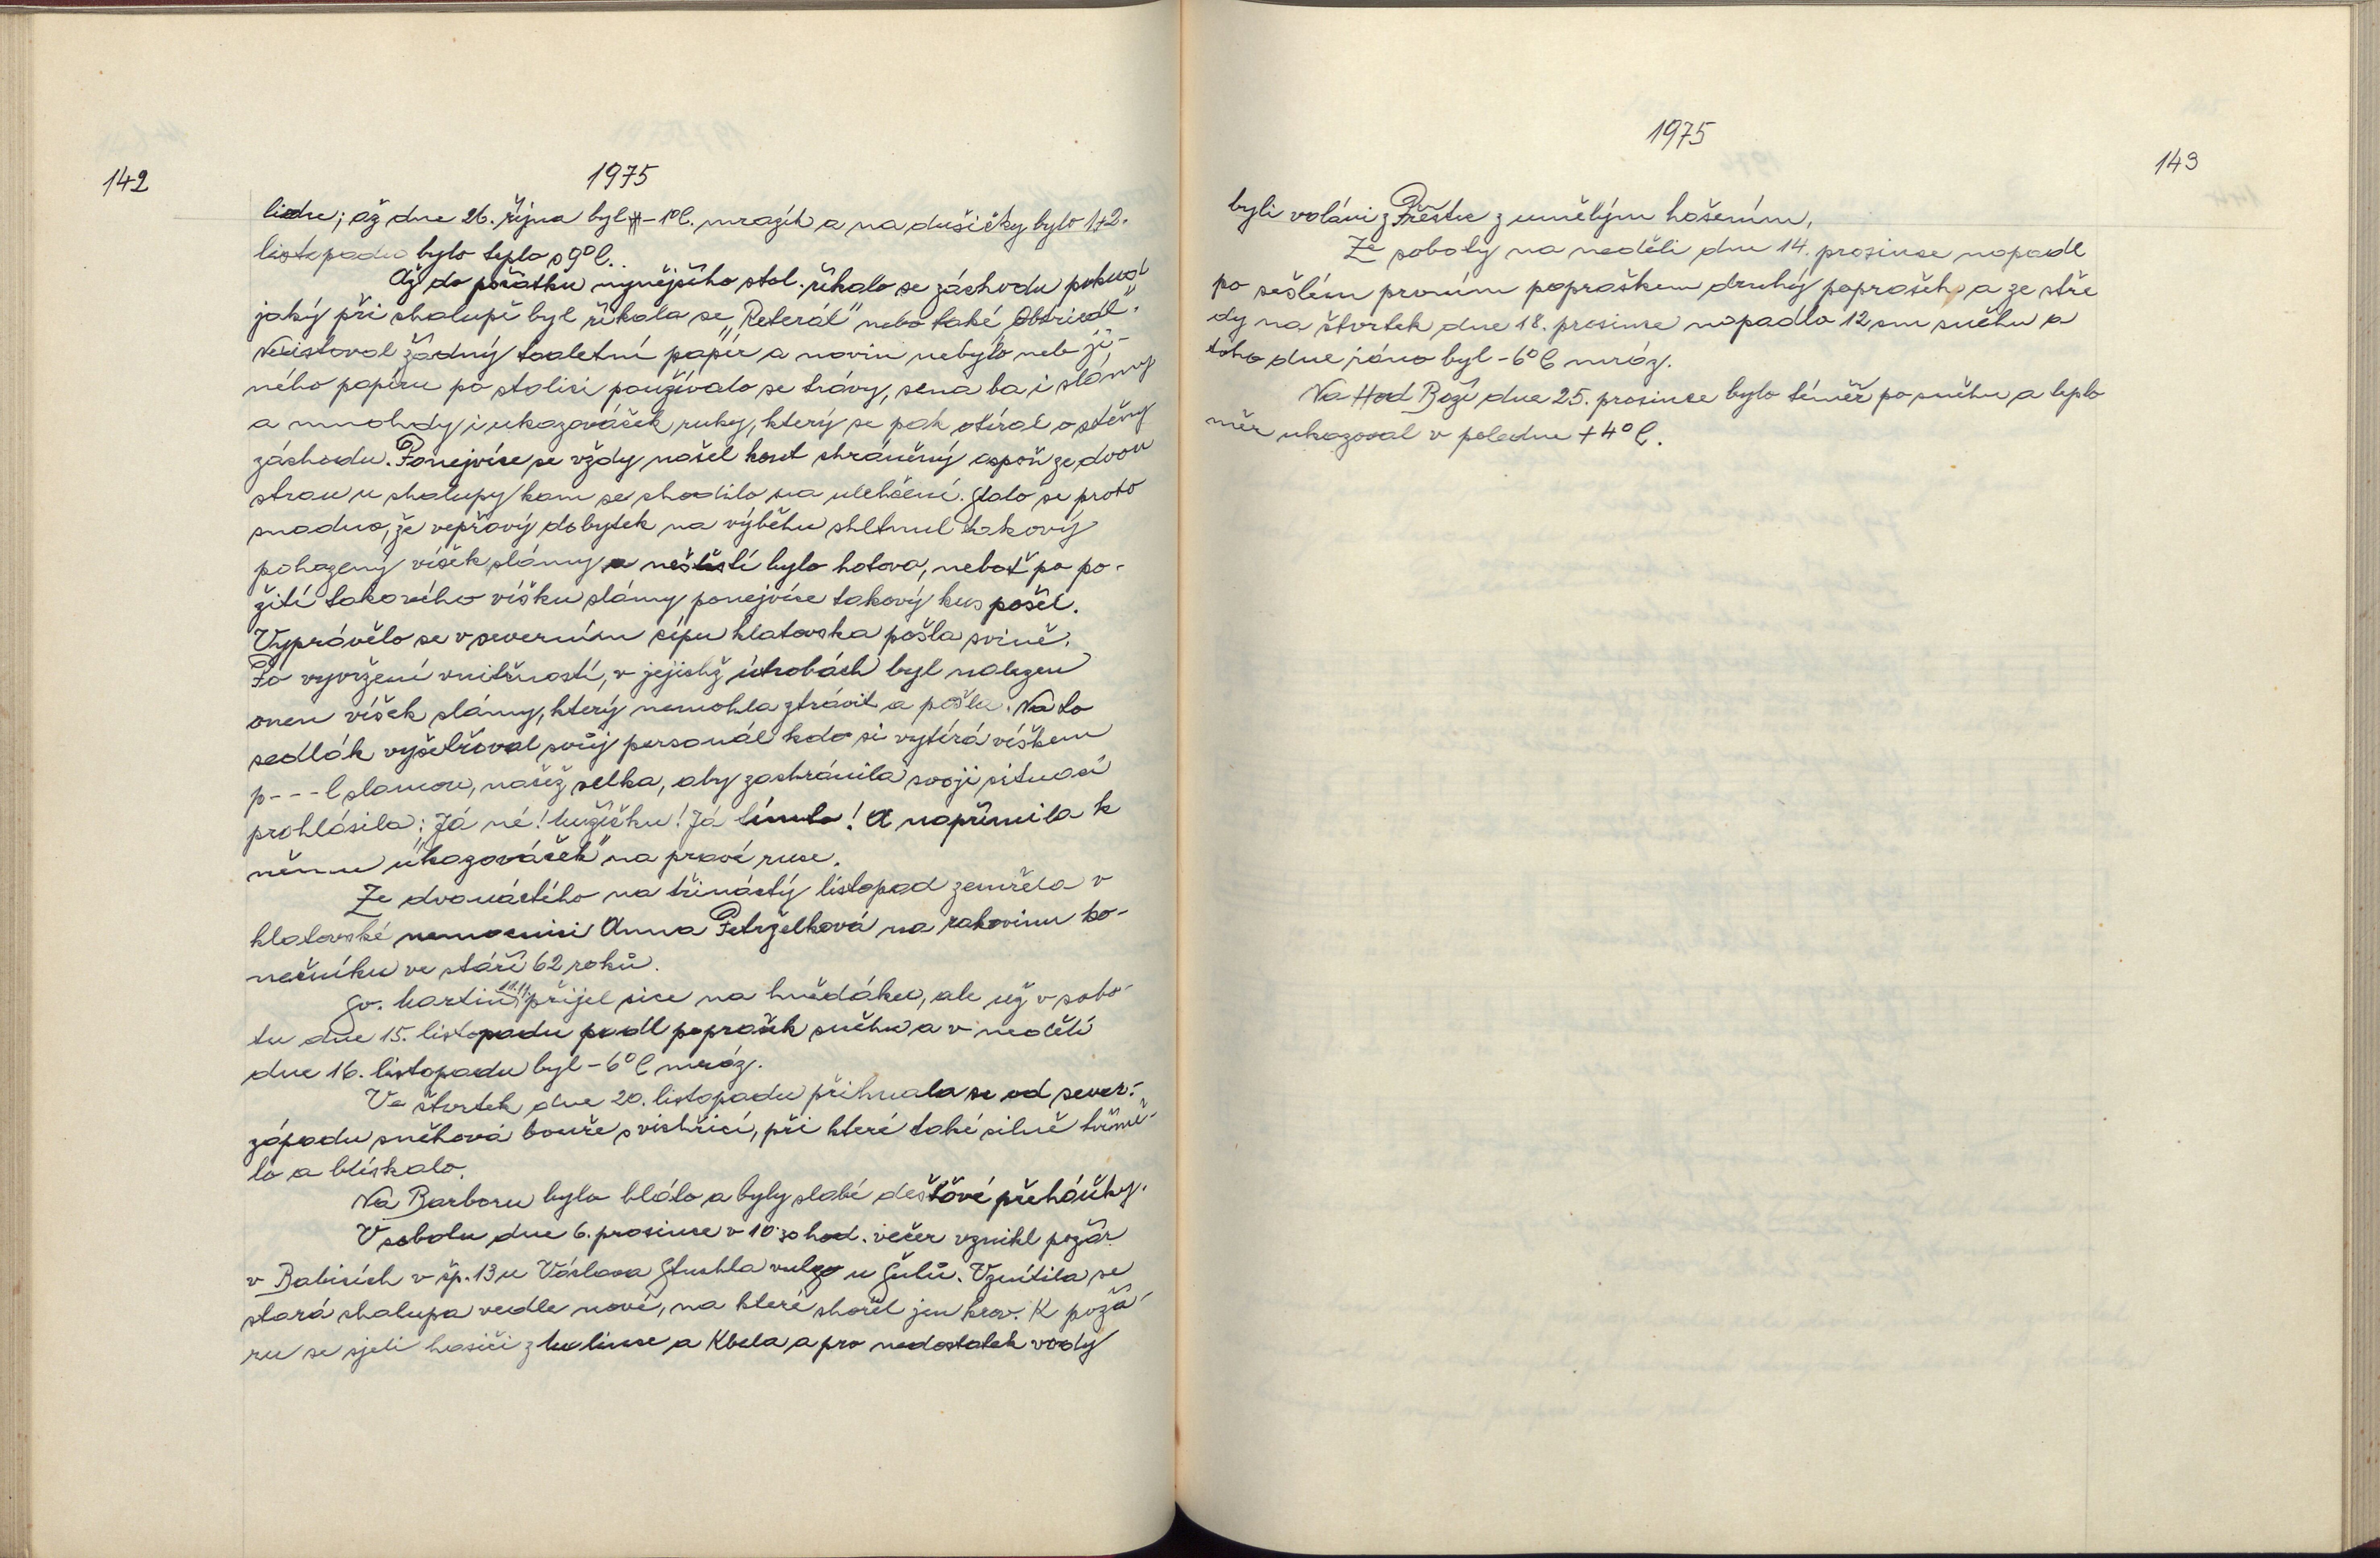 142
1975
lidu; až dne 26. října byl -1°C. mrazík a na dušičky bylo 1+2.
listopadu bylo teplo 9°C.
Až do počátku nynějšího stol. říkalo se záchodu pokud
jaký při chalupě byl říkala se „Reterát" nebo také „Abtriedl".
Neexistoval žádný toaletní papír a novin nebylo neb ji-
ného papíru po stolici používalo se trávy, sena ba i slámy
a mnohdy i ukazováček ruky, který se pak otíral o stěny
záchodu. Ponejvíce se vždy našel kout chráněný aspoň ze dvou
stran u chalupy kam se chodilo na ulehčení. Stalo se proto
snadno, že vepřový dobytek na výběhu shltnul takový
pohazený víšek slámy a neštěstí bylo hotovo, neboť po po-
žití takového víšku slámy ponejvíce takový kus pošel.
Vyprávělo se v severním cípu klatovska pošla svině.
Po vyvržení vnitřností, v jejichž útrobách byl nalezen
onen víšek slámy, který nemohla ztrávit a pošla. Na to
sedlák vyšetřoval svůj personál kdo si vytírá víškem
p---l slamou, načež selka, aby zachránila svoji situaci
prohlásila: Já né! mužíčku! Já tímto! A napřímila k
němu „ukazováček" na pravé ruce.
Ze dvanáctého na třináctý listopad zemřela v
klatovské nemocnici Anna Petrželková na rakovinu ko-
nečníku ve stáří 62 roků.
Sv. Martin 11.11. přijel sice na hnědáku, ale už v sobo-
tu dne 15. listopadu padl poprašek sněhu a v neděli
dne 16. listopadu byl -6°C mráz.
Ve čtvrtek dne 20. listopadu přihnala se od sever.-
západu sněhová bouře s vichřicí, při které také silně hřmě-
lo a blískalo.
Na Barboru bylo bláto a byly slabé dešťové přeháňky.
V sobotu dne 6. prosince v 10:30 hod. večer vznikl požár
v Babicích v čp. 13 u Václava Stuchla vulgo u Šulů. Vznítila se
stará chalupa vedle nové, na které shořel jen krov. K požá-
ru se sjeli hasiči z Malince a Kbela a pro nedostatek vody
1975
143
byli voláni z Přeštic z umělým hašením.
Ze soboty na neděli dne 14. prosince napadl
po sešlém prvním popraškem druhý poprašek a ze stře
dy na čtvrtek dne 18. prosince napadlo 12 cm sněhu a
toho dne ráno byl -6°C mráz.
Na Hod Boží dne 25. prosince bylo téměř po sněhu a teplo
měr ukazoval v poledne +4°C.